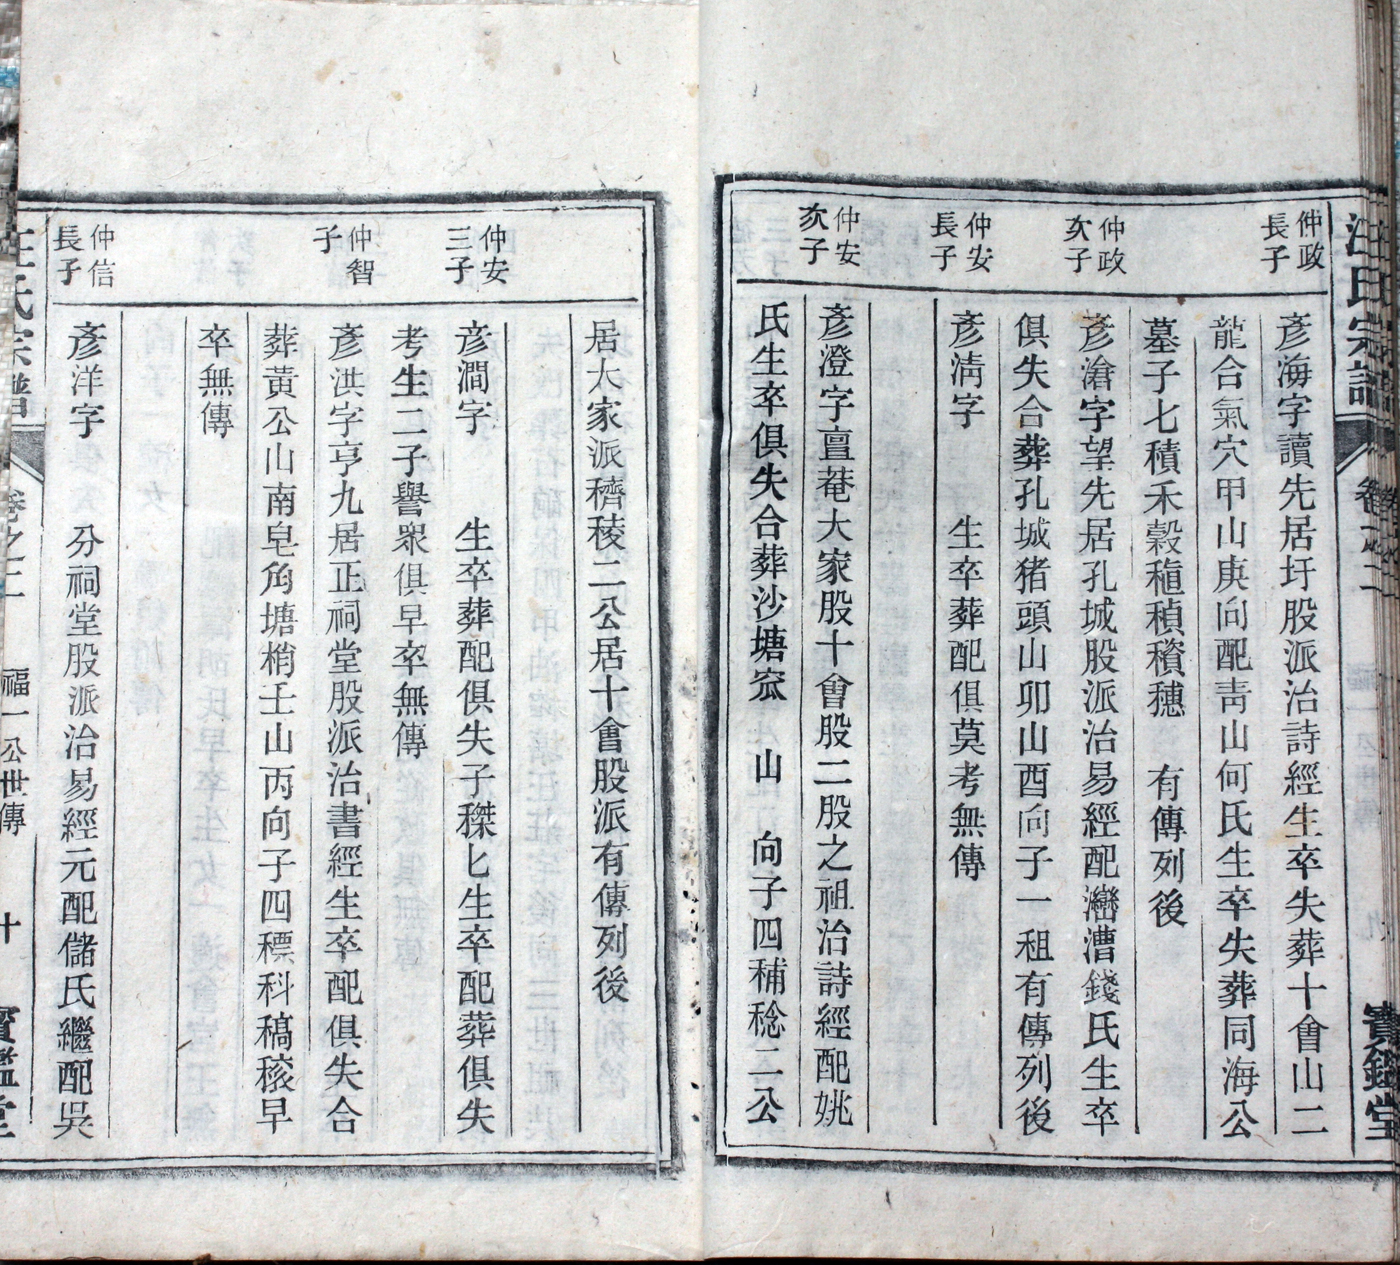 汪氏宗譜
卷之二
寶鑑堂
仲政
長子
彥海字讀先居圩股派治詩經生卒失葬十會山二
龍合氣穴甲山庚向配靑山何氏生卒失葬同海公
墓子七積禾穀稙穳穗 有傳列後
仲政
次子
彥滄字望先居孔城股派治易經配漕錢氏生卒
俱失合葬孔城猪頭山卯山酉向子一租有傳列後
仲安
長子
彥淸字 生卒葬配俱莫考無傳
仲安
次子
彥澄字亶菴大家股十會股二股之祖治詩經配姚
氏生卒俱失合葬沙塘窊 山 向子四稱稔二公
居大家派穧稜二公居十會股派有傳列後
仲安
三子
彥澗字 生卒葬配俱失子榤匕生卒配葬俱失
考生二子譽眾俱早卒無傳
仲智
子
彥洪字亨九居正祠堂股派治書經生卒配俱失合
葬黃公山南皂角塘梢壬山丙向子四科稿早
卒無傳
仲信
長子
彥洋字 分祠堂股派治易經元配儲氏繼配吳
汪氏宗譜
卷之二
福一公世傳
十
寶鑑堂